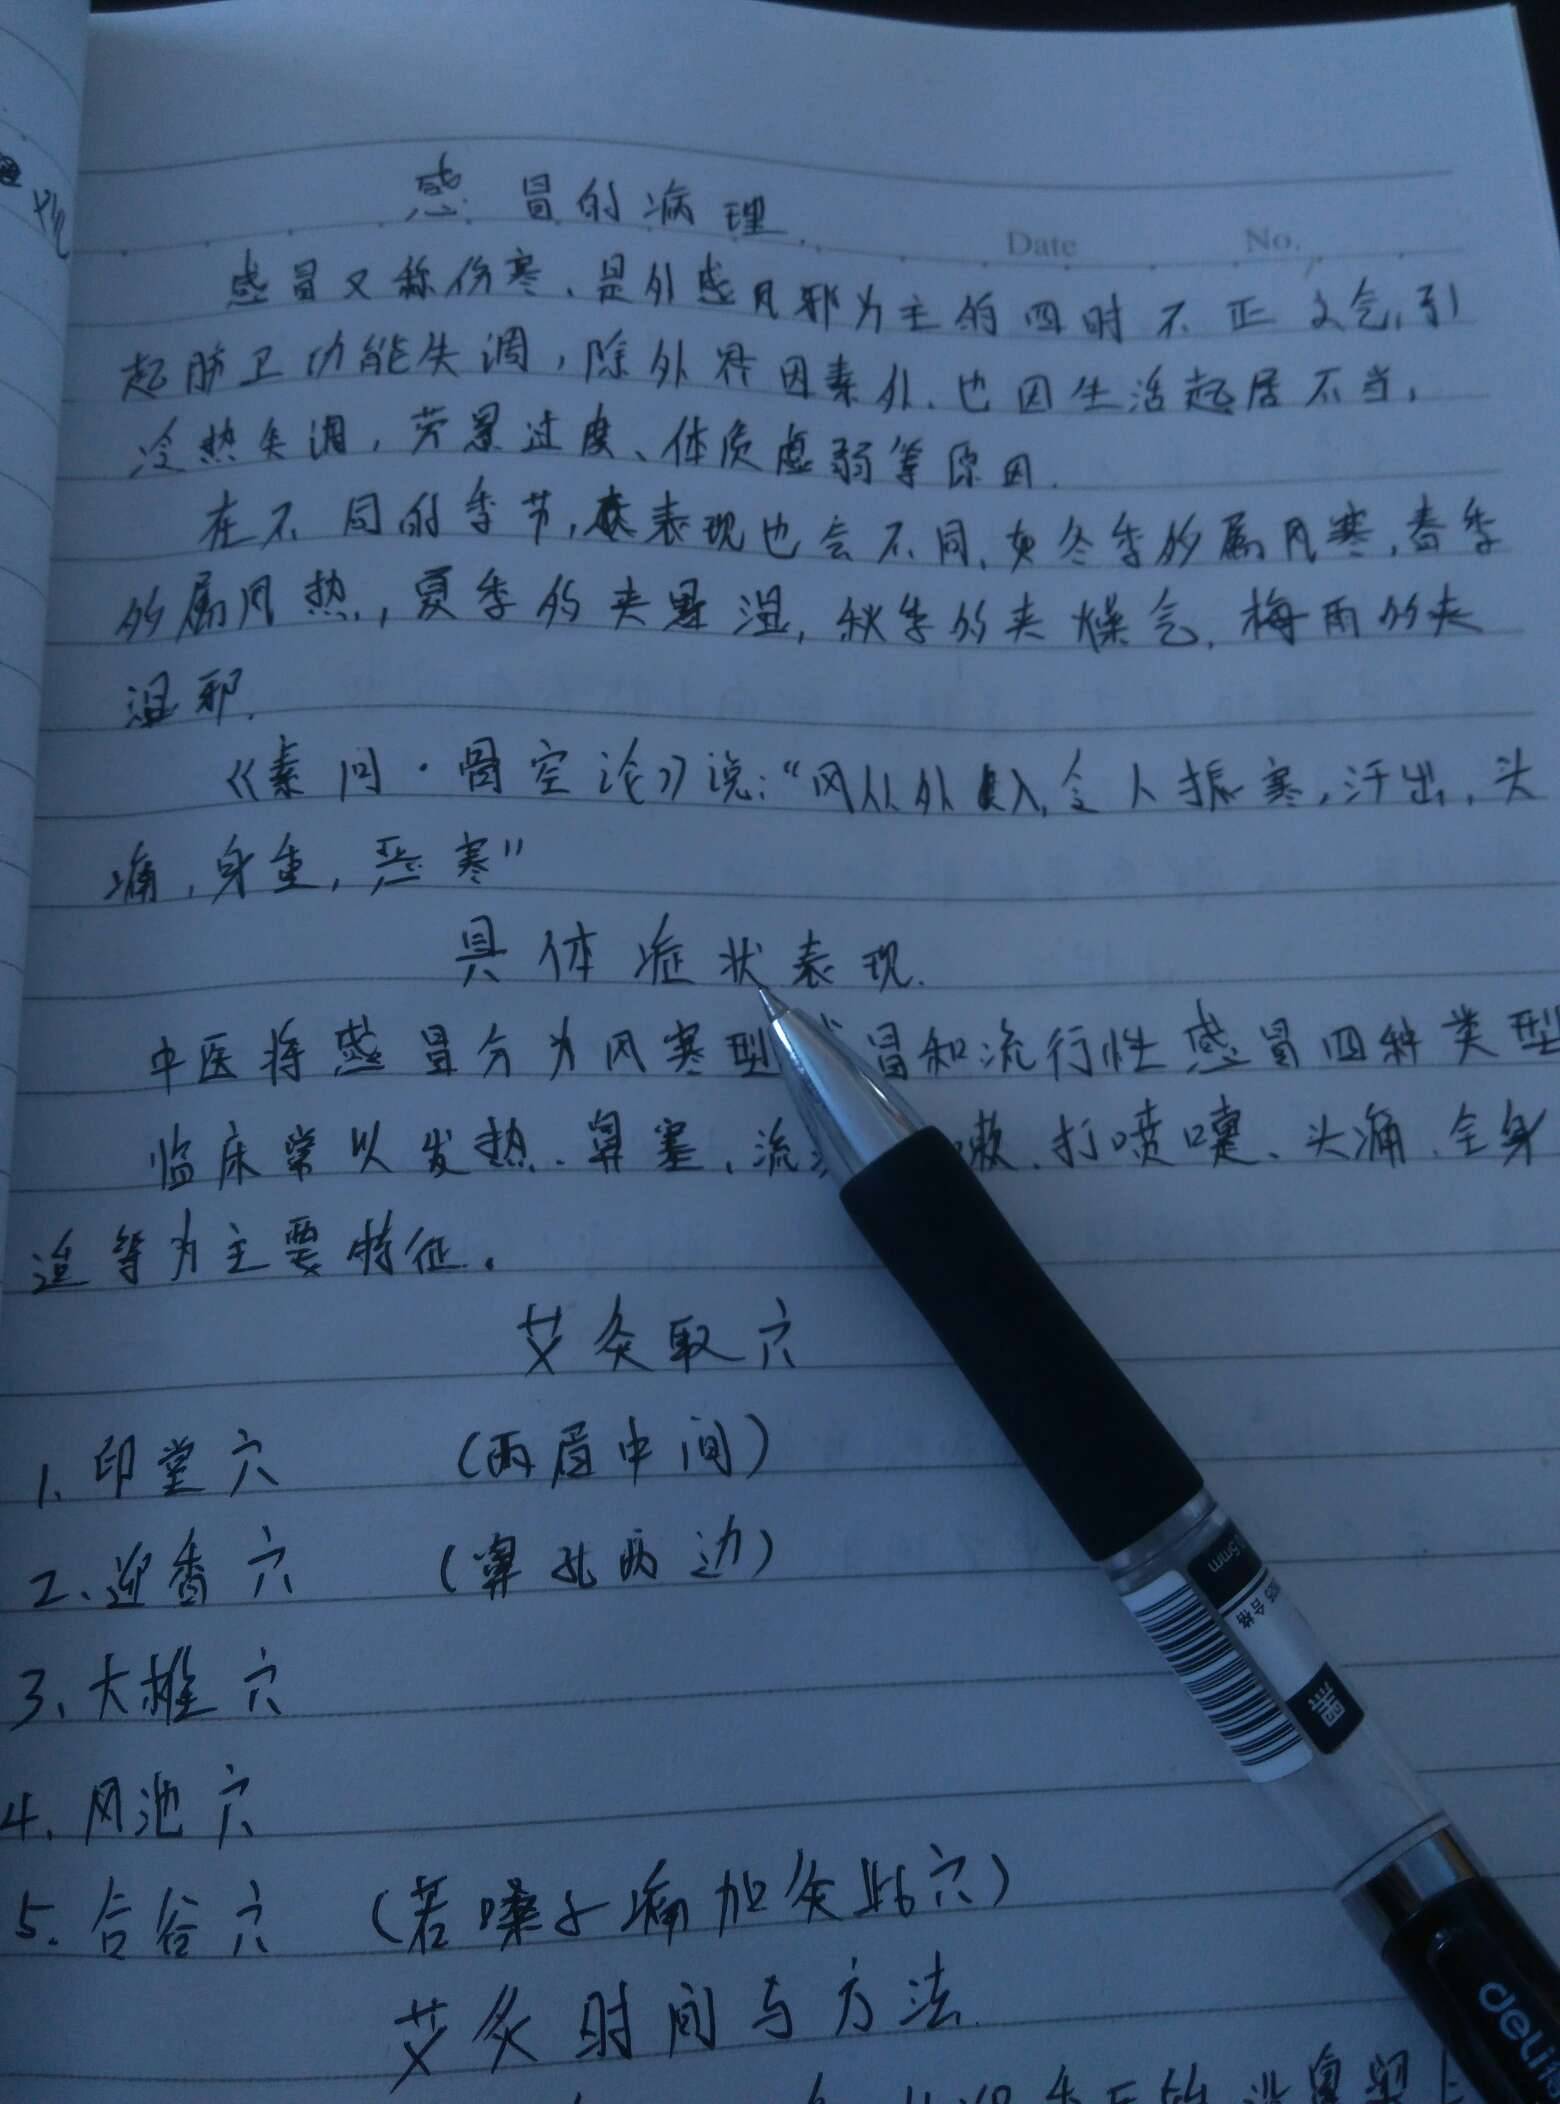 感冒的病理.
Date No.
感冒又称伤寒、是外感风邪为主的四时不正之气,引
起肺卫功能失调,除外界因素外、也因生活起居不当,
冷热失调,劳累过度、体质虚弱等原因.
在不同的季节,表现也会不同,如冬季的属风寒,春季
的属风热,夏季的夹暑湿,秋季的夹燥气,梅雨的夹
湿邪.
《素问·骨空论》说:“风从外入,令人振寒,汗出,头
痛,身重,恶寒”
具体症状表现.
中医将感冒分为风寒型 冒和流行性感冒四种类型
临床常以发热、鼻塞、流 嗽、打喷嚏、头痛、全身
适等为主要特征。
艾灸取穴
1、印堂穴 (两眉中间)
2、迎香穴 (鼻孔两边)
3、大椎穴
4、风池穴
5.合谷穴 (若嗓子痛加灸此穴)
艾灸时间与方法.
.5mm
合格
黑
deli